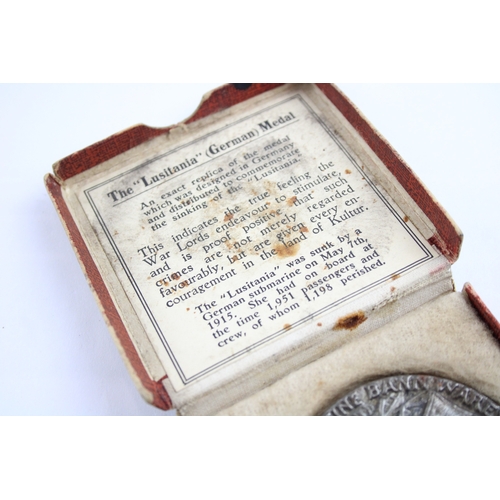 The "Lusitania" (German) Medal
An exact replica of the medal
which was designed in Germany
and distributed to commemorate
the sinking of the "Lusitania.
This indicates the true feeling the
War Lords endeavour to stimulate,
and is proof positive that such
crimes are not merely regarded
favourably, but are given every en-
couragement in the land of Kultur.
The "Lusitania" was sunk by a
German submarine on May 7th,
1915. She had on board at
the time 1,951 passengers and
crew, of whom 1,198 perished.
INE BANNWARE